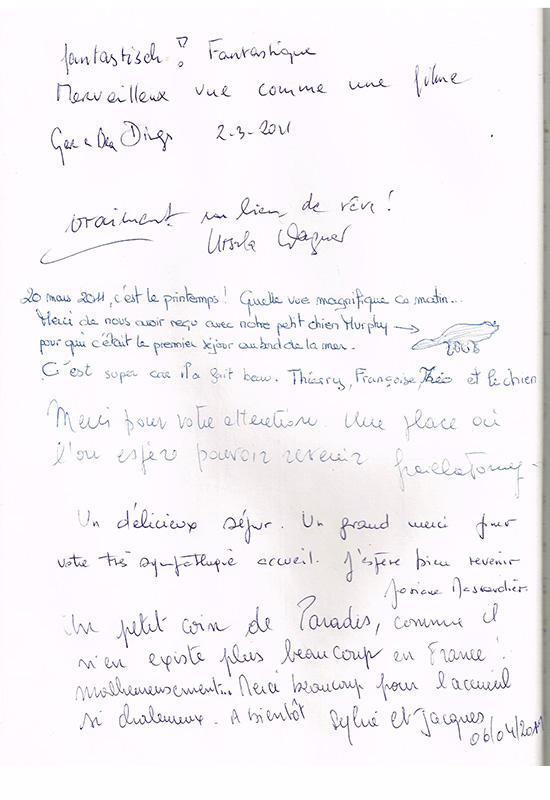 fantastisch!! Fantastique
Merveilleux vue comme une filme
2-3-2011
vraiment un lieu de rêve!
Ursula Wagner
20 mars 2011, c'est le printemps! Quelle vue magnifique ce matin...
Merci de nous avoir reçu avec notre petit chien Murphy →
pour qui c'était le premier séjour au bord de la mer.
C'est super car il a fait beau. Thierry, Françoise Théo et le chien
Merci pour votre attention. Une place où
l'on espère pouvoir revenir
Un délicieux séjour. Un grand merci pour
votre très sympathique accueil. J'espère bien revenir
Josiane
Un petit coin de Paradis, comme il
n'en existe plus beaucoup en France!
malheureusement... Merci beaucoup pour l'accueil
si chaleureux. A bientôt Sylvie et Jacques
06/04/2011